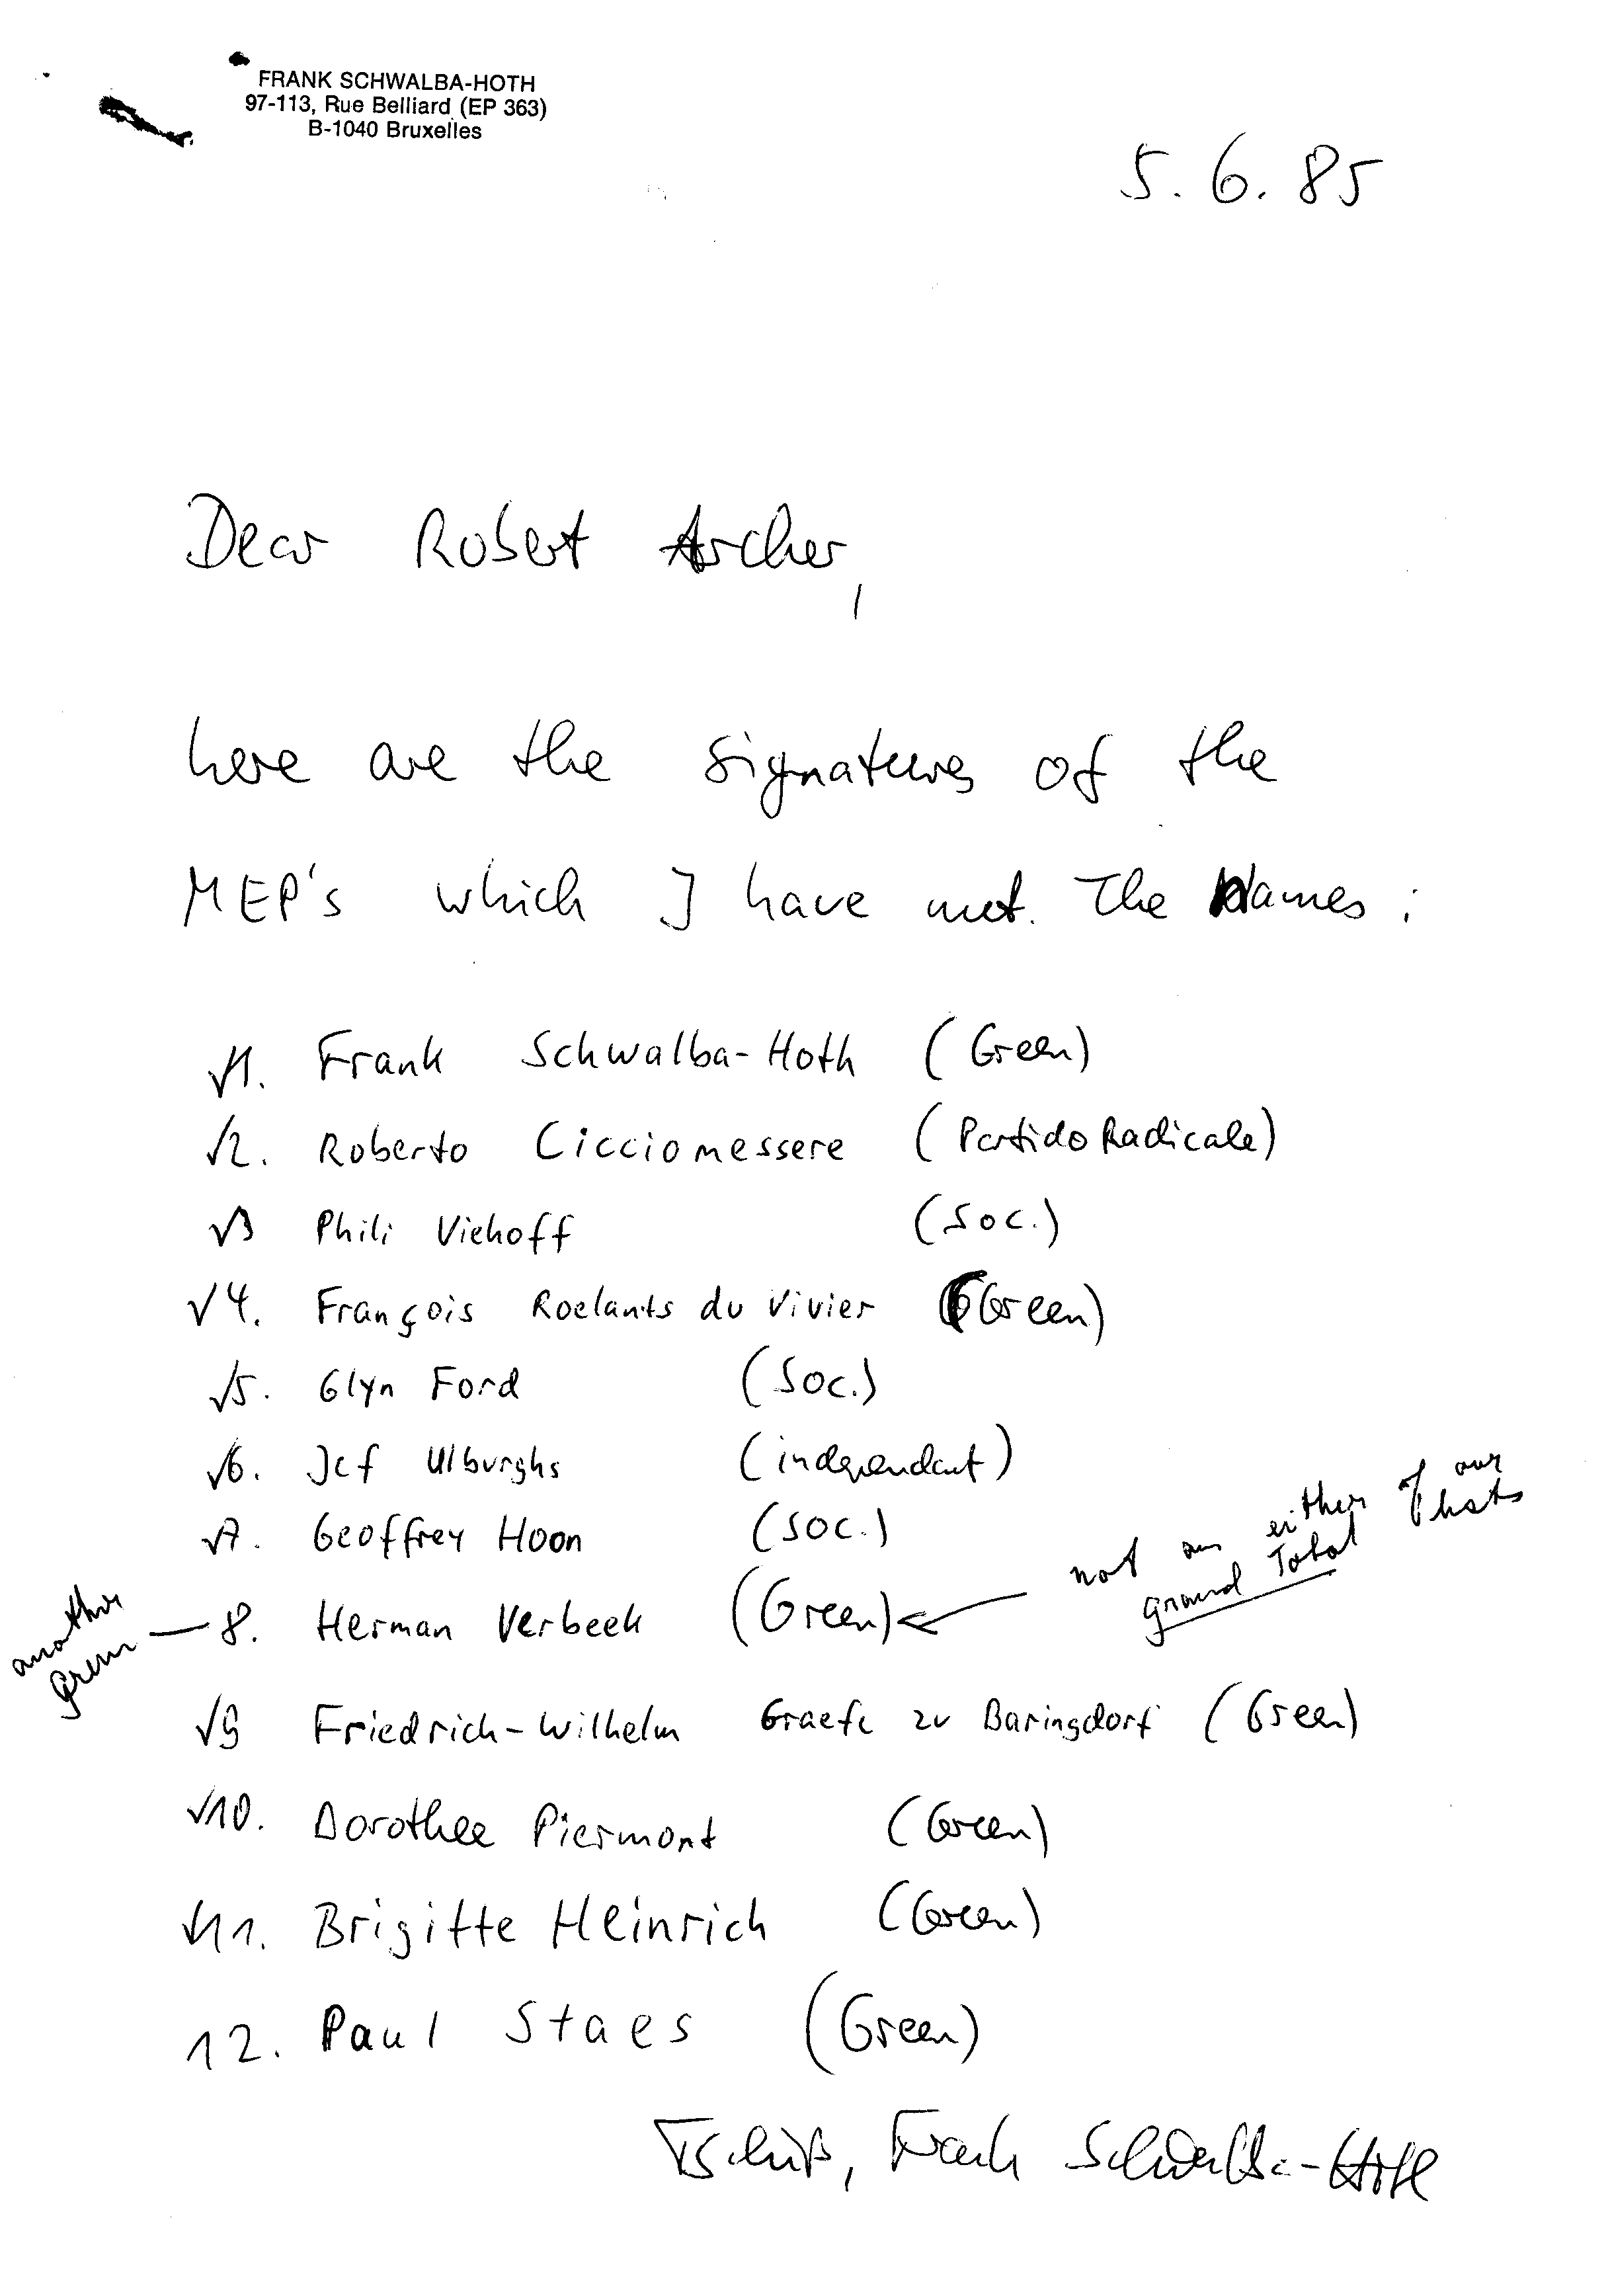 FRANK SCHWALBA-HOTH
97-113, Rue Belliard (EP 363)
B-1040 Bruxelles
5. 6. 85
Dear Robert Archer,
here are the signatures of the
MEP's which I have met. The Names:
√1. Frank Schwalba-Hoth (Green)
√2. Roberto Cicciomessere (Partido Radicale)
√3 Phili Viehoff (Soc.)
√4. François Roelants du Vivier (Green)
√5. Glyn Ford (Soc.)
√6. Jef Ulburghs (independant)
√7. Geoffrey Hoon (SOC.)
another
green — 8. Herman Verbeek (Green) ← not on either of our lists
Grand Total
√9 Friedrich-Wilhelm Graefe zu Baringdorf (Green)
√10. Dorothee Piermont (Green)
√11. Brigitte Heinrich (Green)
12. Paul Staes (Green)
Tschüß, Frank Schwalba-Hoth